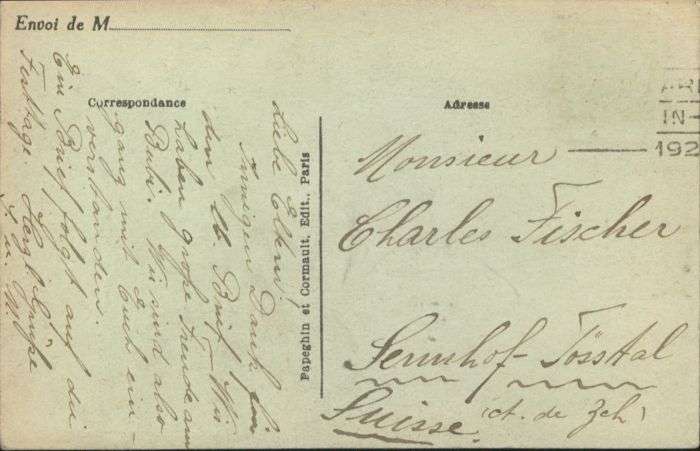 Envoi de M
Correspondance
Liebe Eltern!
Innigen Dank für
den lb. Brief. Wir
haben große Freude am
Bubi. Wir sind also
ganz mit Euch ein-
verstanden.
Ein Brief folgt auf die
Festtage. Herzl. Grüße
Papeghin et Cormault, Edit., Paris
Adresse
IN
192
Monsieur
Charles Fischer
Sennhof-Tösstal
(ct. de Zch)
Suisse.